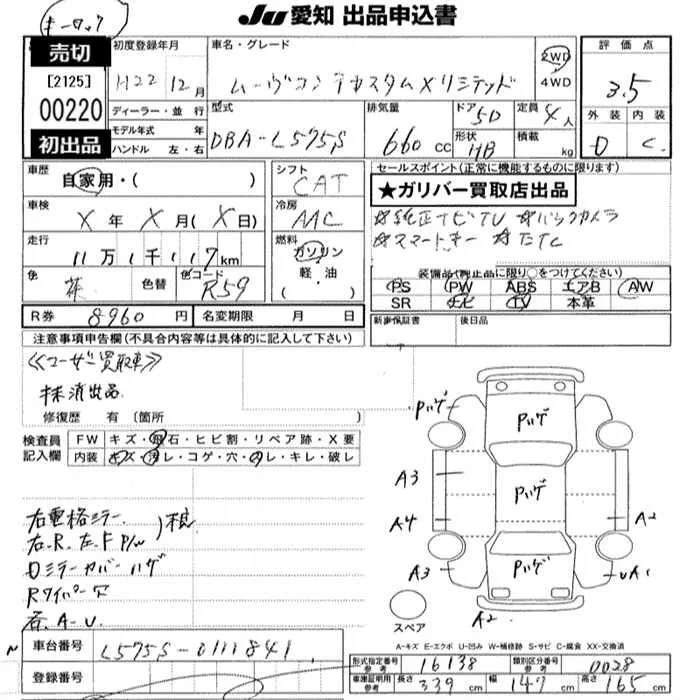 キーロック
JU 愛知 出品申込書
売切
[2125]
00220
初出品
初度登録年月
H22 12月
ディーラー・並行
モデル年式 年
ハンドル 左・右
車名・グレード
ムーヴコンテカスタムXリミテッド
2WD
4WD
型式
DBA-L575S
排気量
660 CC
ドア
5D
形状
HB
定員
4人
積載
kg
評価点
3.5
外装 内装
D C
車歴
自家用・( )
車検
X年 X月(X日)
走行
11万1千117km
色
茶
色替
色コード
R59
シフト
CAT
冷房
AAC
燃料
ガソリン
軽油
( )
セールスポイント(正常に機能するものに限ります)
★ガリバー買取店出品
☆純正ナビTV ☆バックカメラ
☆スマートキー ☆ETC
装備品(純正品に限り○をつけてください)
PS PW ABS エアB AW
SR ナビ TV 本革
新車保証書
後日品
R券 8960円
名変期限 月 日
注意事項申告欄(不具合内容等は具体的に記入して下さい)
≪ユーザー買取車≫
抹消出品
修復歴 有 〔箇所
検査員
記入欄
FW キズ・飛石・ヒビ割・リペア跡・X要
内装 キズ・汚レ・コゲ・穴・スレ・キレ・破レ
右電格ミラー
右.R.左.F P/W
Dミラーカバーハゲ
Rワイパー欠
各.A-U.
Pハゲ
Pハゲ
Pハゲ
Pハゲ
A3
A4
A3
A2
UA1
A2
スペア
A-キズ E-エクボ U-凹み W-補修跡 S-サビ C-腐食 XX-交換済
車台番号
L575S-0111841
登録番号
型式指定番号
参考
16138
類別区分番号
参考
0028
車庫証明用
参考
長さ 339 cm
幅 147 cm
高さ 165 cm